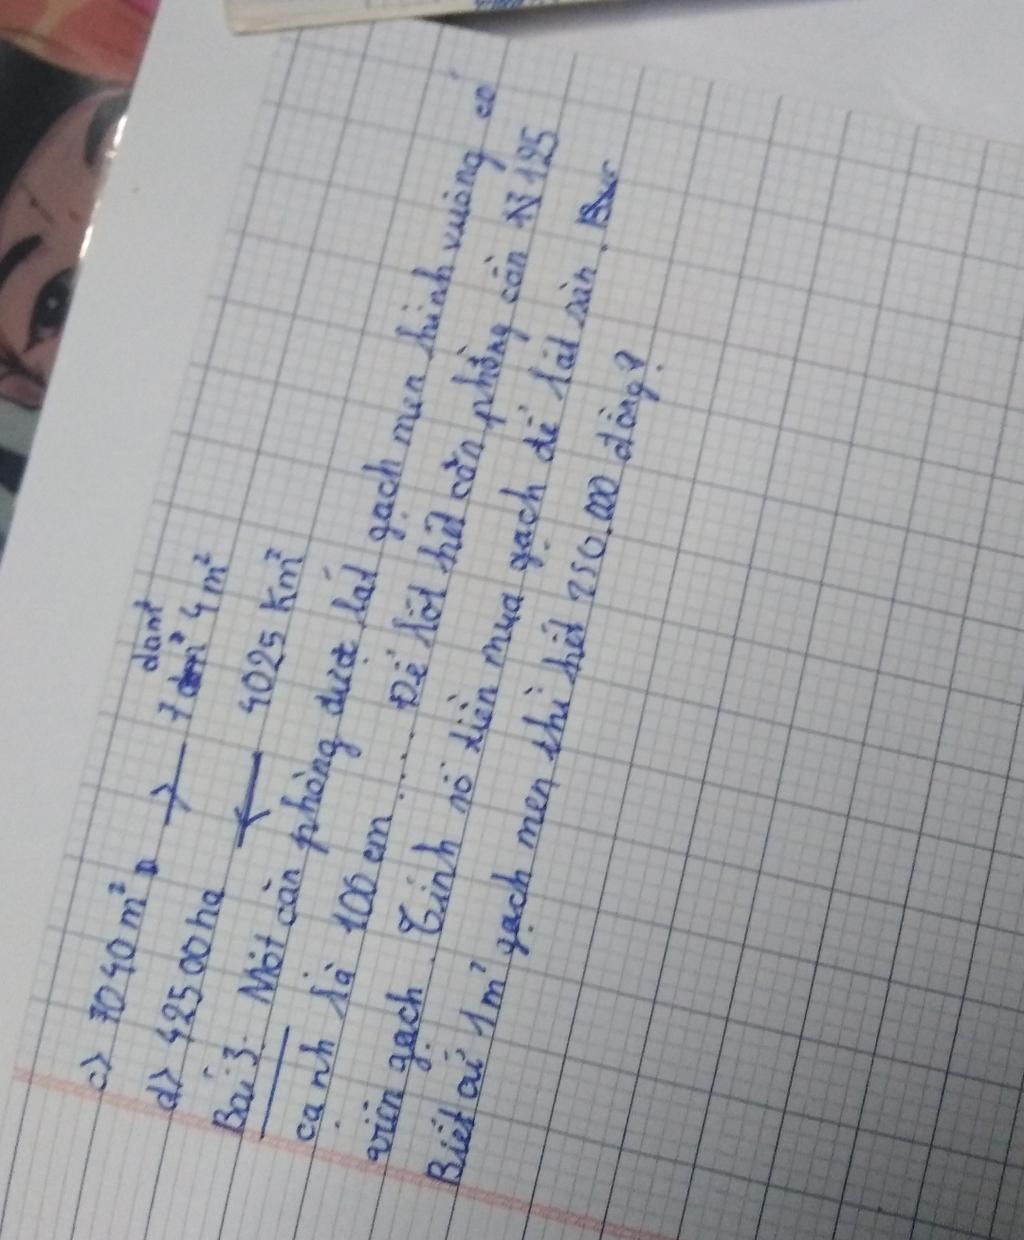 c) 7040 m² → 7 dam² 4 m²
d) 42500 ha ← 4025 Km²
Bài 3. Một căn phòng được lát gạch men hình vuông có
cạnh là 100 cm .... Để lót hết căn phòng cần 125
viên gạch. Tính số tiền mua gạch để lát sàn.
Biết cứ 1m² gạch men thì hết 250.000 đồng?